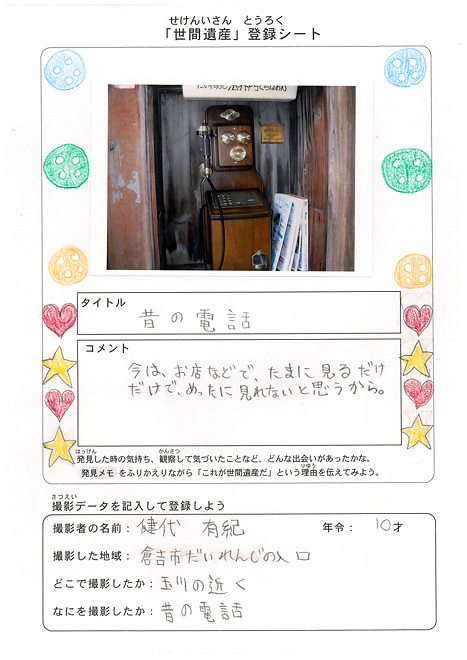 せけんいさん とうろく
「世間遺産」登録シート
タイトル
昔の電話
コメント
今は、お店などで、たまに見るだけ
だけで、めったに見れないと思うから。
はっけん かんさつ
発見した時の気持ち、観察して気づいたことなど、どんな出会いがあったかな。
りゆう
発見メモをふりかえりながら「これが世間遺産だ」という理由を伝えてみよう。
さつえい
撮影データを記入して登録しよう
撮影者の名前：健代 有紀 年令：10才
撮影した地域：倉吉市だいれんじの入口
どこで撮影したか：玉川の近く
なにを撮影したか：昔の電話